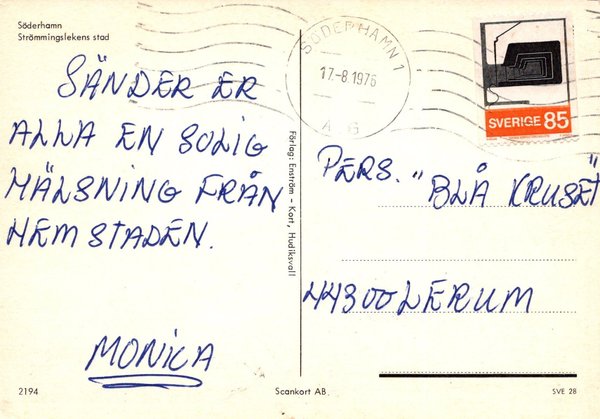 Söderhamn
Strömmingslekens stad
SÄNDER ER
ALLA EN SOLIG
HÄLSNING FRÅN
HEMSTADEN.
MONICA
2194
Förlag: Enström - Kort, Hudiksvall
Scankort AB.
SÖDERHAMN 1
17-8.1976
A G
SVERIGE 85
PERS. "BLÅ KRUSET"
44300 LERUM
SVE 28